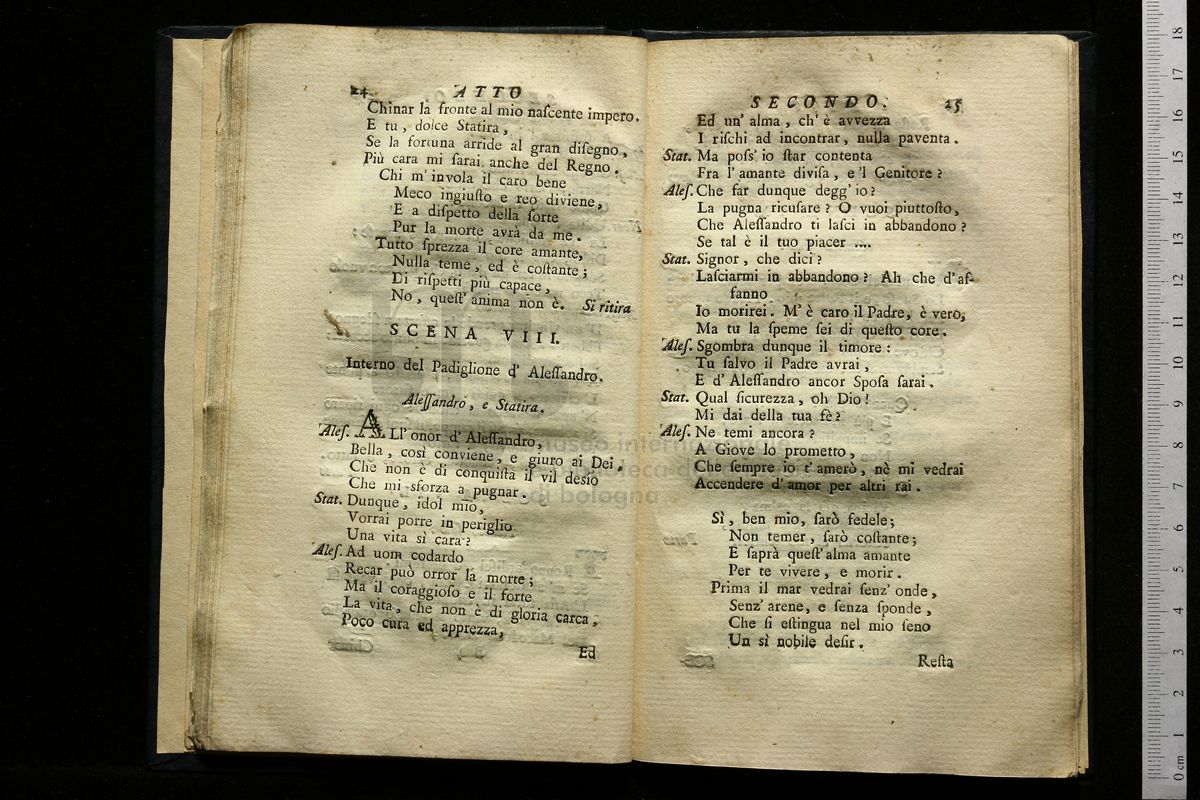 24 ATTO
Chinar la fronte al mio naſcente impero.
E tu, dolce Statira,
Se la fortuna arride al gran diſegno,
Più cara mi ſarai anche del Regno.
Chi m' invola il caro bene
Meco ingiuſto e reo diviene,
E a diſpetto della ſorte
Pur la morte avrà da me.
Tutto ſprezza il core amante,
Nulla teme, ed è coſtante;
Di riſpetti più capace,
No, queſt' anima non è. Si ritira
SCENA VIII.
Interno del Padiglione d' Aleſſandro.
Aleſſandro, e Statira.
Aleſ. ALl' onor d' Aleſſandro,
Bella, così conviene, e giuro ai Dei,
Che non è di conquiſta il vil desìo
Che mi sforza a pugnar.
Stat. Dunque, idol mio,
Vorrai porre in periglio
Una vita sì cara?
Aleſ. Ad uom codardo
Recar può orror la morte;
Ma il coraggioſo e il forte
La vita, che non è di gloria carca,
Poco cura ed apprezza,
Ed
SECONDO. 25
Ed un' alma, ch' è avvezza
I riſchi ad incontrar, nulla paventa.
Stat. Ma poſs' io ſtar contenta
Fra l' amante diviſa, e 'l Genitore?
Aleſ. Che far dunque degg' io?
La pugna ricuſare? O vuoi piuttoſto,
Che Aleſſandro ti laſci in abbandono?
Se tal è il tuo piacer ....
Stat. Signor, che dici?
Laſciarmi in abbandono? Ah che d' af-
fanno
Io morirei. M' è caro il Padre, è vero,
Ma tu la ſpeme ſei di queſto core.
Aleſ. Sgombra dunque il timore:
Tu ſalvo il Padre avrai,
E d' Aleſſandro ancor Spoſa ſarai.
Stat. Qual ſicurezza, oh Dio!
Mi dai della tua fè?
Aleſ. Ne temi ancora?
A Giove lo prometto,
Che ſempre io t' amerò, nè mi vedrai
Accendere d' amor per altri rai.
Sì, ben mio, ſarò fedele;
Non temer, ſarò coſtante;
E ſaprà queſt' alma amante
Per te vivere, e morir.
Prima il mar vedrai ſenz' onde,
Senz' arene, e ſenza ſponde,
Che ſi eſtingua nel mio ſeno
Un sì nobile deſir.
Reſta
0 cm 1 2 3 4 5 6 7 8 9 10 11 12 13 14 15 16 17 18